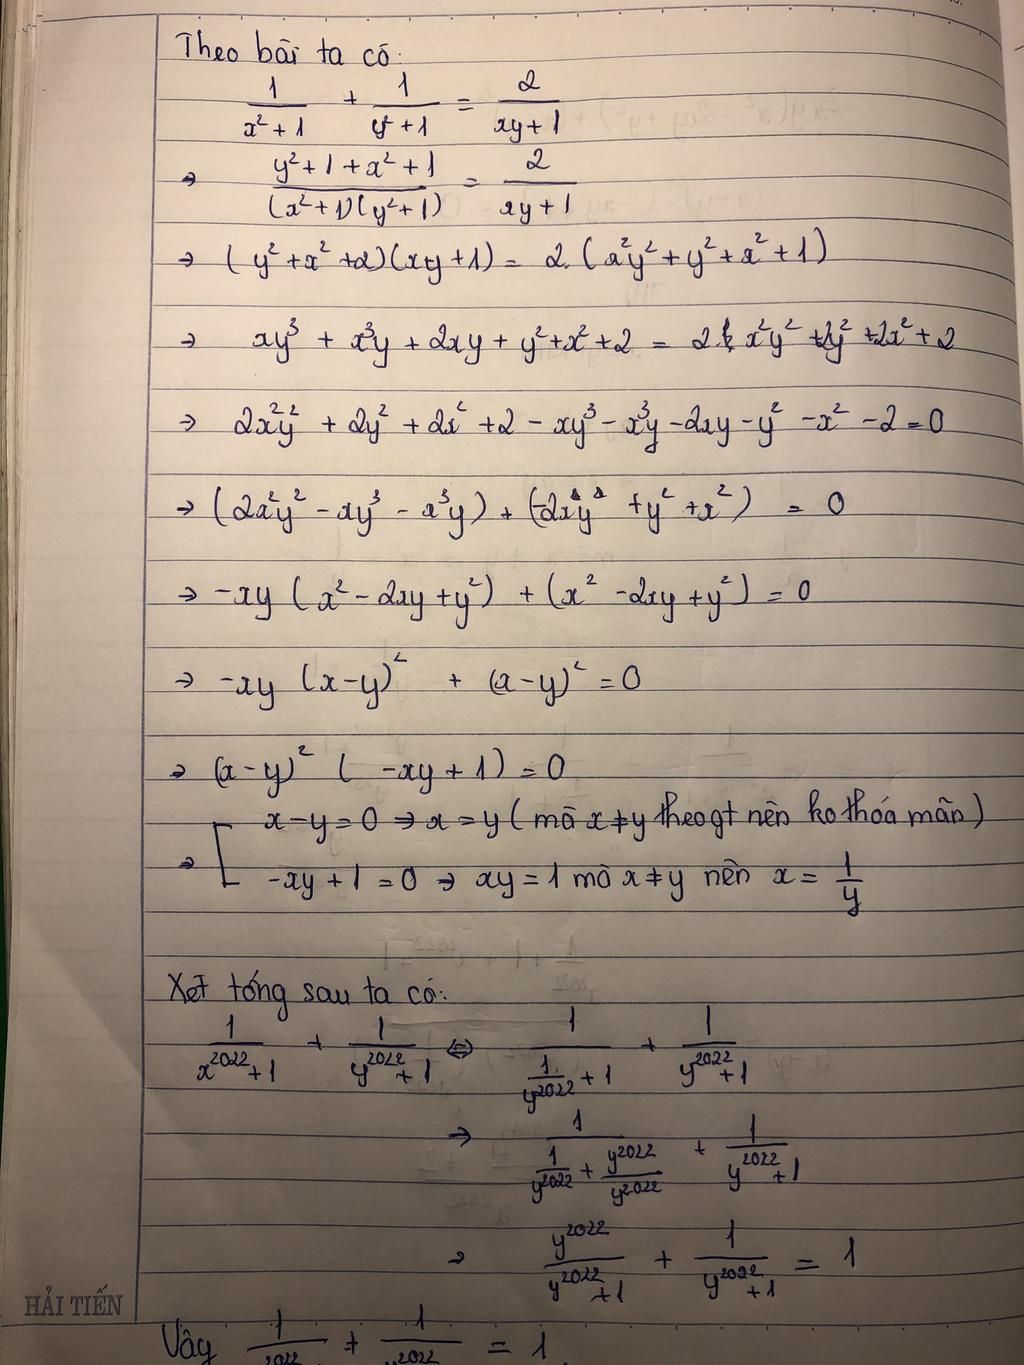 Theo bài ta có:
1/(x²+1) + 1/(y²+1) = 2/(xy+1)
→ (y²+1+x²+1)/((x²+1)(y²+1)) = 2/(xy+1)
→ (y²+x²+2)(xy+1) = 2.(x²y²+y²+x²+1)
→ xy³ + x³y + 2xy + y²+x²+2 = 2x²y² +2y² +2x² + 2
→ 2x²y² + 2y² + 2x² +2 - xy³ - x³y - 2xy - y² - x² - 2 = 0
→ (2x²y² - xy³ - x³y) + (-2xy + y² + x²) = 0
→ -xy (x² - 2xy + y²) + (x² - 2xy + y²) = 0
→ -xy (x-y)² + (x-y)² = 0
→ (x-y)² (-xy + 1) = 0
→ [ x-y = 0 → x = y (mà x≠y theo gt nên ko thoả mãn)
-xy + 1 = 0 → xy = 1 mà x≠y nên x = 1/y
Xét tổng sau ta có:
1/(x²⁰²²+1) + 1/(y²⁰²²+1) ⇔ 1/(1/y²⁰²² + 1) + 1/(y²⁰²²+1)
→ 1/(1/y²⁰²² + y²⁰²²/y²⁰²²) + 1/(y²⁰²²+1)
→ y²⁰²²/(y²⁰²²+1) + 1/(y²⁰²²+1) = 1
HẢI TIẾN
Vậy 1/ 2022 + 1/ 2022 = 1